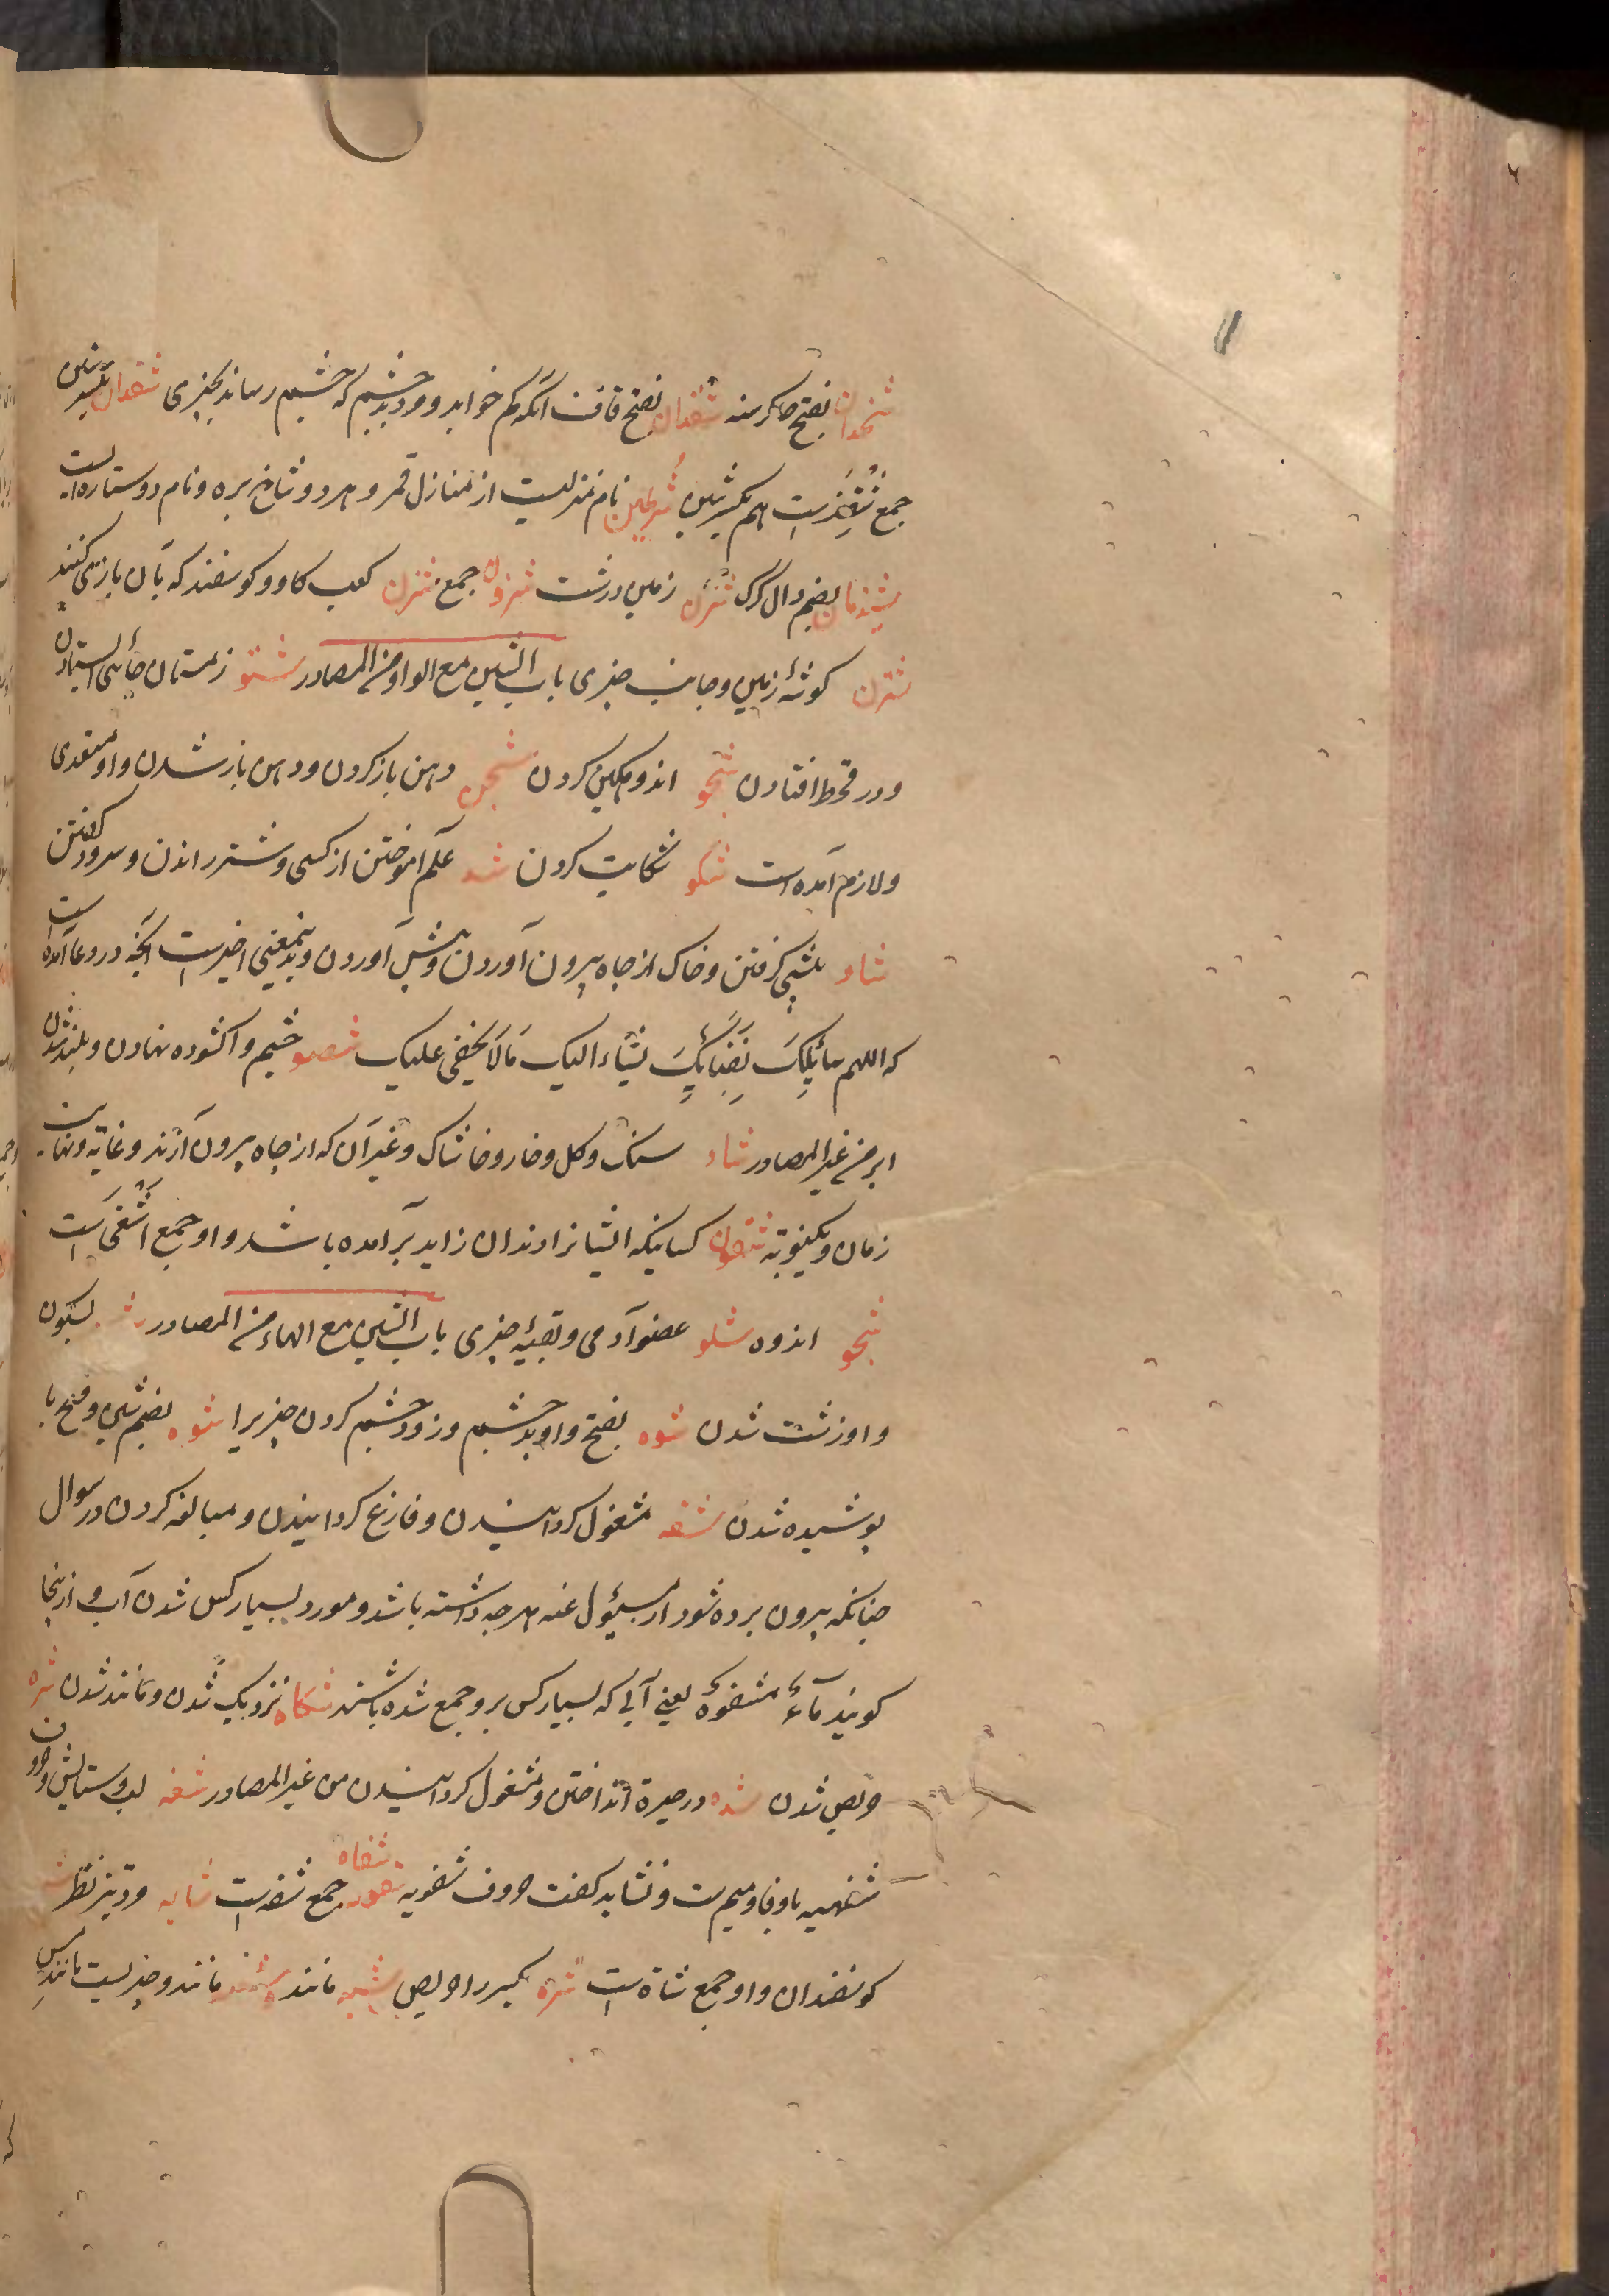 شحذان بفتح حا گرسنه شقذان بفتح قاف آنکه کم خوابد و زود بد چشم که چشم رساند بچیزی شقذان بکسر شین
جمع شقذ است هم بکسر شین شرطین نام منزلیست از منازل قمر و هر دو شاخ بره و نام دو ستاره است
شیذمان بضم دال گرگ شزن زمین درشت شزون جمع شزن کعب گاو و گوسفند که بآن بازی کنند
شزن گوشهٔ زمین و جانب چیزی باب الشین مع الواو من المصادر شتو زمستان جائی ایستادن
و در قحط افتادن شجو اندوهگین کردن شحو دهن باز کردن و دهن باز شدن و او متعدی
و لازم آمده است شکو شکایت کردن شدو علم آموختن از کسی و شتر راندن و سرود گفتن
شاو پیشی گرفتن و خاک از چاه بیرون آوردن و پیش آوردن و بدین معنی اخیر است آنچه در دعا آمده است
که اللهم سائلک بفنائک یشاء الیک مالا یخفی علیک شصو چشم وا گشوده نهادن و بلند شدن
ابر من غیر المصادر شاو سنگ و گل و خار و خاشاک و غیر آن که از چاه بیرون آرند و غایة و نهایت
زمان و یکنوبته شغو کسانیکه ایشانرا دندان زاید برآمده باشد و او جمع اشغی است
شجو اندوه شلو عضو آدمی و بقیهٔ چیزی باب الشین مع الهاء من المصادر بسکون
واو زشت شدن شوه بفتح واو بد چشم و زود چشم کردن چیزیرا شوه بضم شین و فتح با
پوشیده شدن شفه مشغول گردانیدن و فارغ گردانیدن و مبالغه کردن در سوال
چنانکه بیرون برده شود از مسئول عنه هرچه داشته باشد و مورد بسیار کس شدن آب و از اینجا
گویند مآء مشفوه یعنی آبی که بسیار کس برو جمع شده باشند شکاه نزدیک شدن و مانند شدن شره
حریص شدن شده در حیرة انداختن و مشغول گردانیدن من غیر المصادر شفه لب و ستایش و حروف
شفهیه با و فا و میم ست و نشاید گفت حروف شفویه شفاه جمع شفه است تیز نظر
گوسفندان و او جمع شاة است شره بکسر را حریص شبه مانند مانند و چیزیست مانند مس